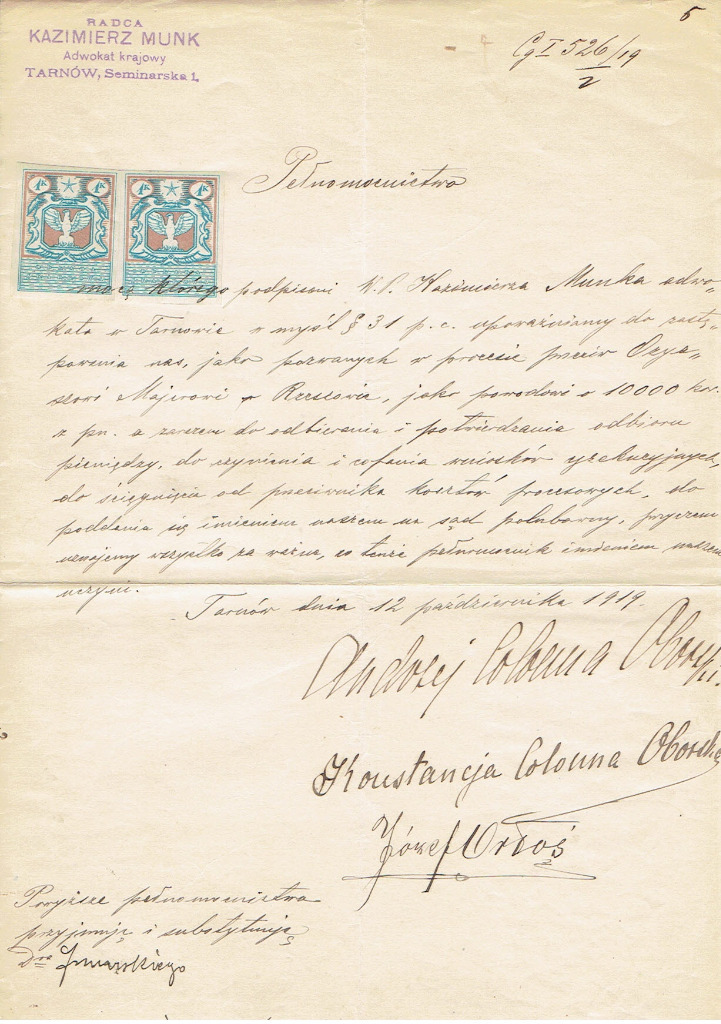 5
RADCA
KAZIMIERZ MUNK
Adwokat krajowy
TARNÓW, Seminarska 1.
Cg I 526/19
2
Pełnomocnictwo
1K 1K 1K 1K
mocą którego podpisani W.P. Kazimierza Munka adwo-
kata w Tarnowie w myśl § 31 p. c. upoważniamy do zastę-
powania nas, jako pozwanych w procesie przeciw
Majerowi w Rzeszowie, jako powodowi o 10000 kor.
z pn. a zarazem do odbierania i potwierdzania odbioru
pieniędzy, do czynienia i cofania wniosków egzekucyjnych,
do ściągnięcia od przeciwnika kosztów procesowych, do
poddania się imieniem naszem na sąd polubowny, przyczem
uznajemy wszystko za ważne, co tenże pełnomocnik imieniem naszem
uczyni.
Tarnów dnia 12 października 1919.
Andrzej Colonna Oborski
Konstancja Colonna Oborska
Józef
Powyższe pełnomocnictwo
przyjmuję i substytuuję
Dra